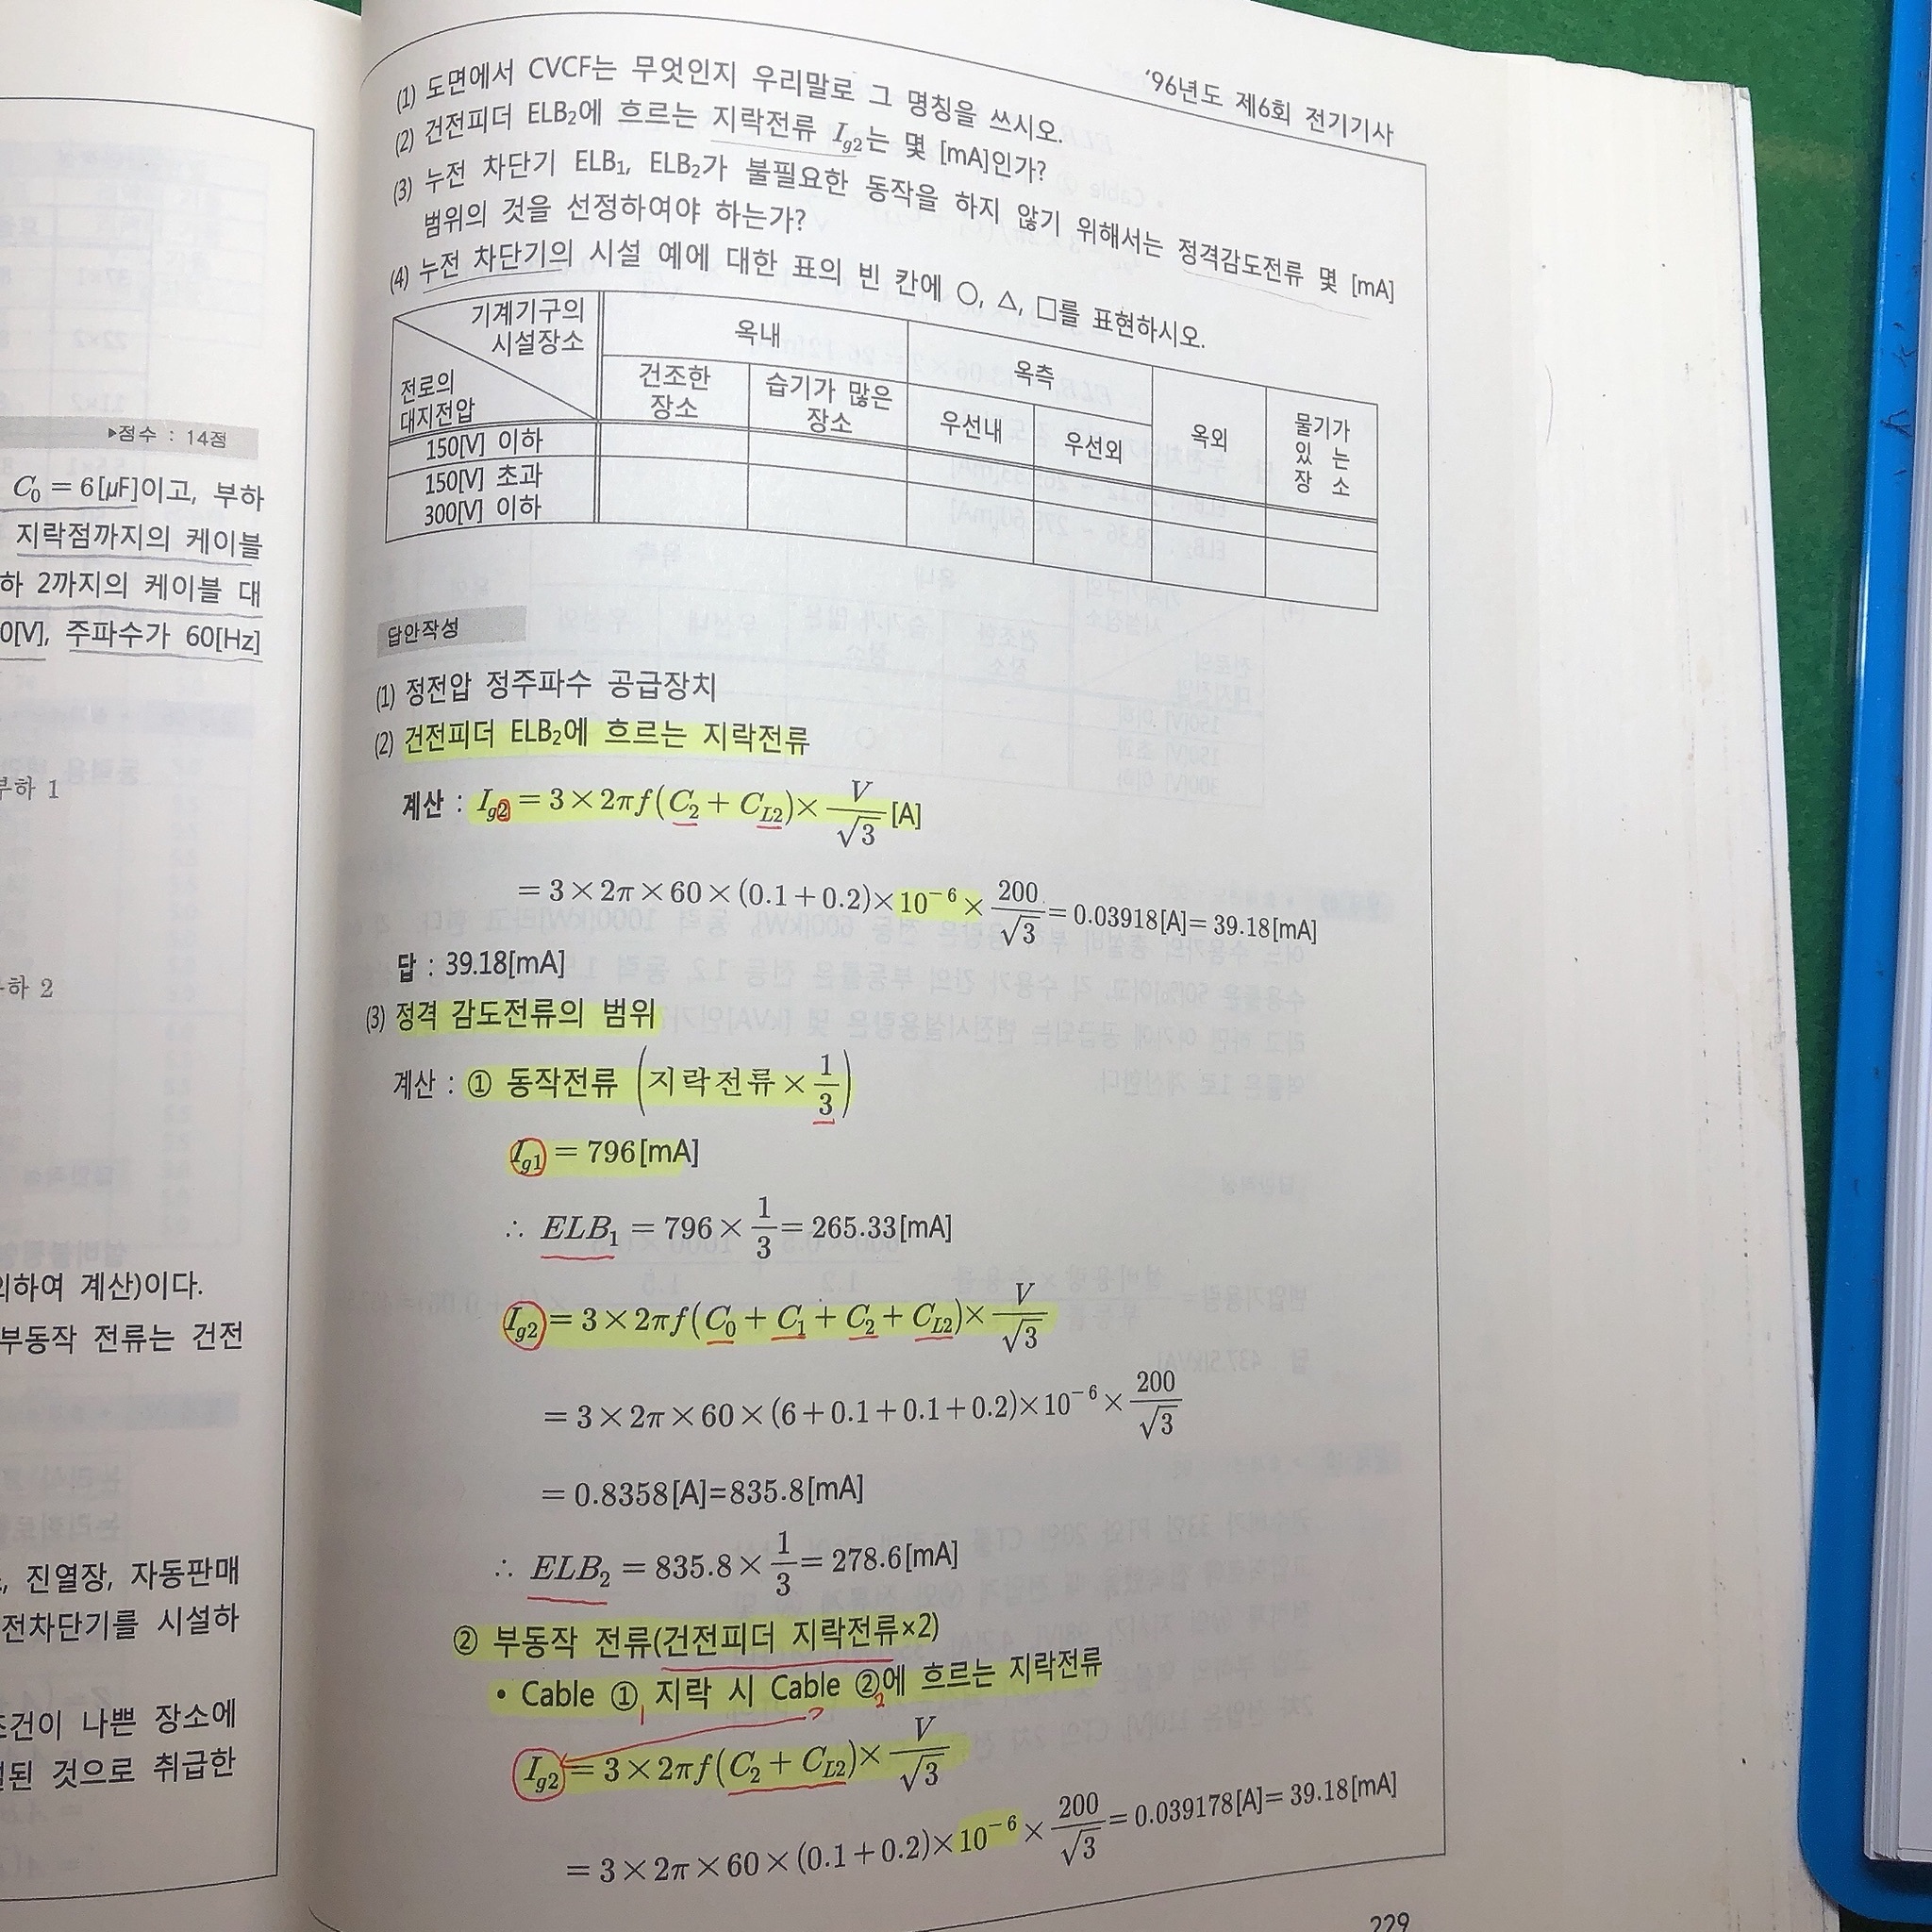 ▶점수 : 14점
C₀ = 6[μF]이고, 부하
지락점까지의 케이블
하 2까지의 케이블 대
0[V], 주파수가 60[Hz]
부하 1
하 2
의하여 계산)이다.
부동작 전류는 건전
, 진열장, 자동판매
전차단기를 시설하
조건이 나쁜 장소에
된 것으로 취급한
'96년도 제6회 전기기사
(1) 도면에서 CVCF는 무엇인지 우리말로 그 명칭을 쓰시오.
(2) 건전피더 ELB₂에 흐르는 지락전류 I_g2는 몇 [mA]인가?
(3) 누전 차단기 ELB₁, ELB₂가 불필요한 동작을 하지 않기 위해서는 정격감도전류 몇 [mA]
범위의 것을 선정하여야 하는가?
(4) 누전 차단기의 시설 예에 대한 표의 빈 칸에 ○, △, □를 표현하시오.
기계기구의
시설장소
전로의
대지전압
옥내
옥측
옥외
물기가
있 는
장 소
건조한
장소
습기가 많은
장소
우선내
우선외
150[V] 이하
150[V] 초과
300[V] 이하
답안작성
(1) 정전압 정주파수 공급장치
(2) 건전피더 ELB₂에 흐르는 지락전류
계산 : I_g2 = 3×2πf(C₂ + C_L2)× V/√3 [A]
= 3×2π×60×(0.1+0.2)×10⁻⁶× 200/√3 = 0.03918[A]= 39.18[mA]
답 : 39.18[mA]
(3) 정격 감도전류의 범위
계산 : ① 동작전류 (지락전류× 1/3)
I_g1 = 796[mA]
∴ ELB₁ = 796× 1/3 = 265.33[mA]
I_g2 = 3×2πf(C₀ + C₁ + C₂ + C_L2)× V/√3
= 3×2π×60×(6+0.1+0.1+0.2)×10⁻⁶× 200/√3
= 0.8358[A]=835.8[mA]
∴ ELB₂ = 835.8× 1/3 = 278.6[mA]
② 부동작 전류(건전피더 지락전류×2)
• Cable ① 지락 시 Cable ②에 흐르는 지락전류
1 2
I_g2 = 3×2πf(C₂ + C_L2)× V/√3
= 3×2π×60×(0.1+0.2)×10⁻⁶× 200/√3 = 0.039178[A]= 39.18[mA]
229